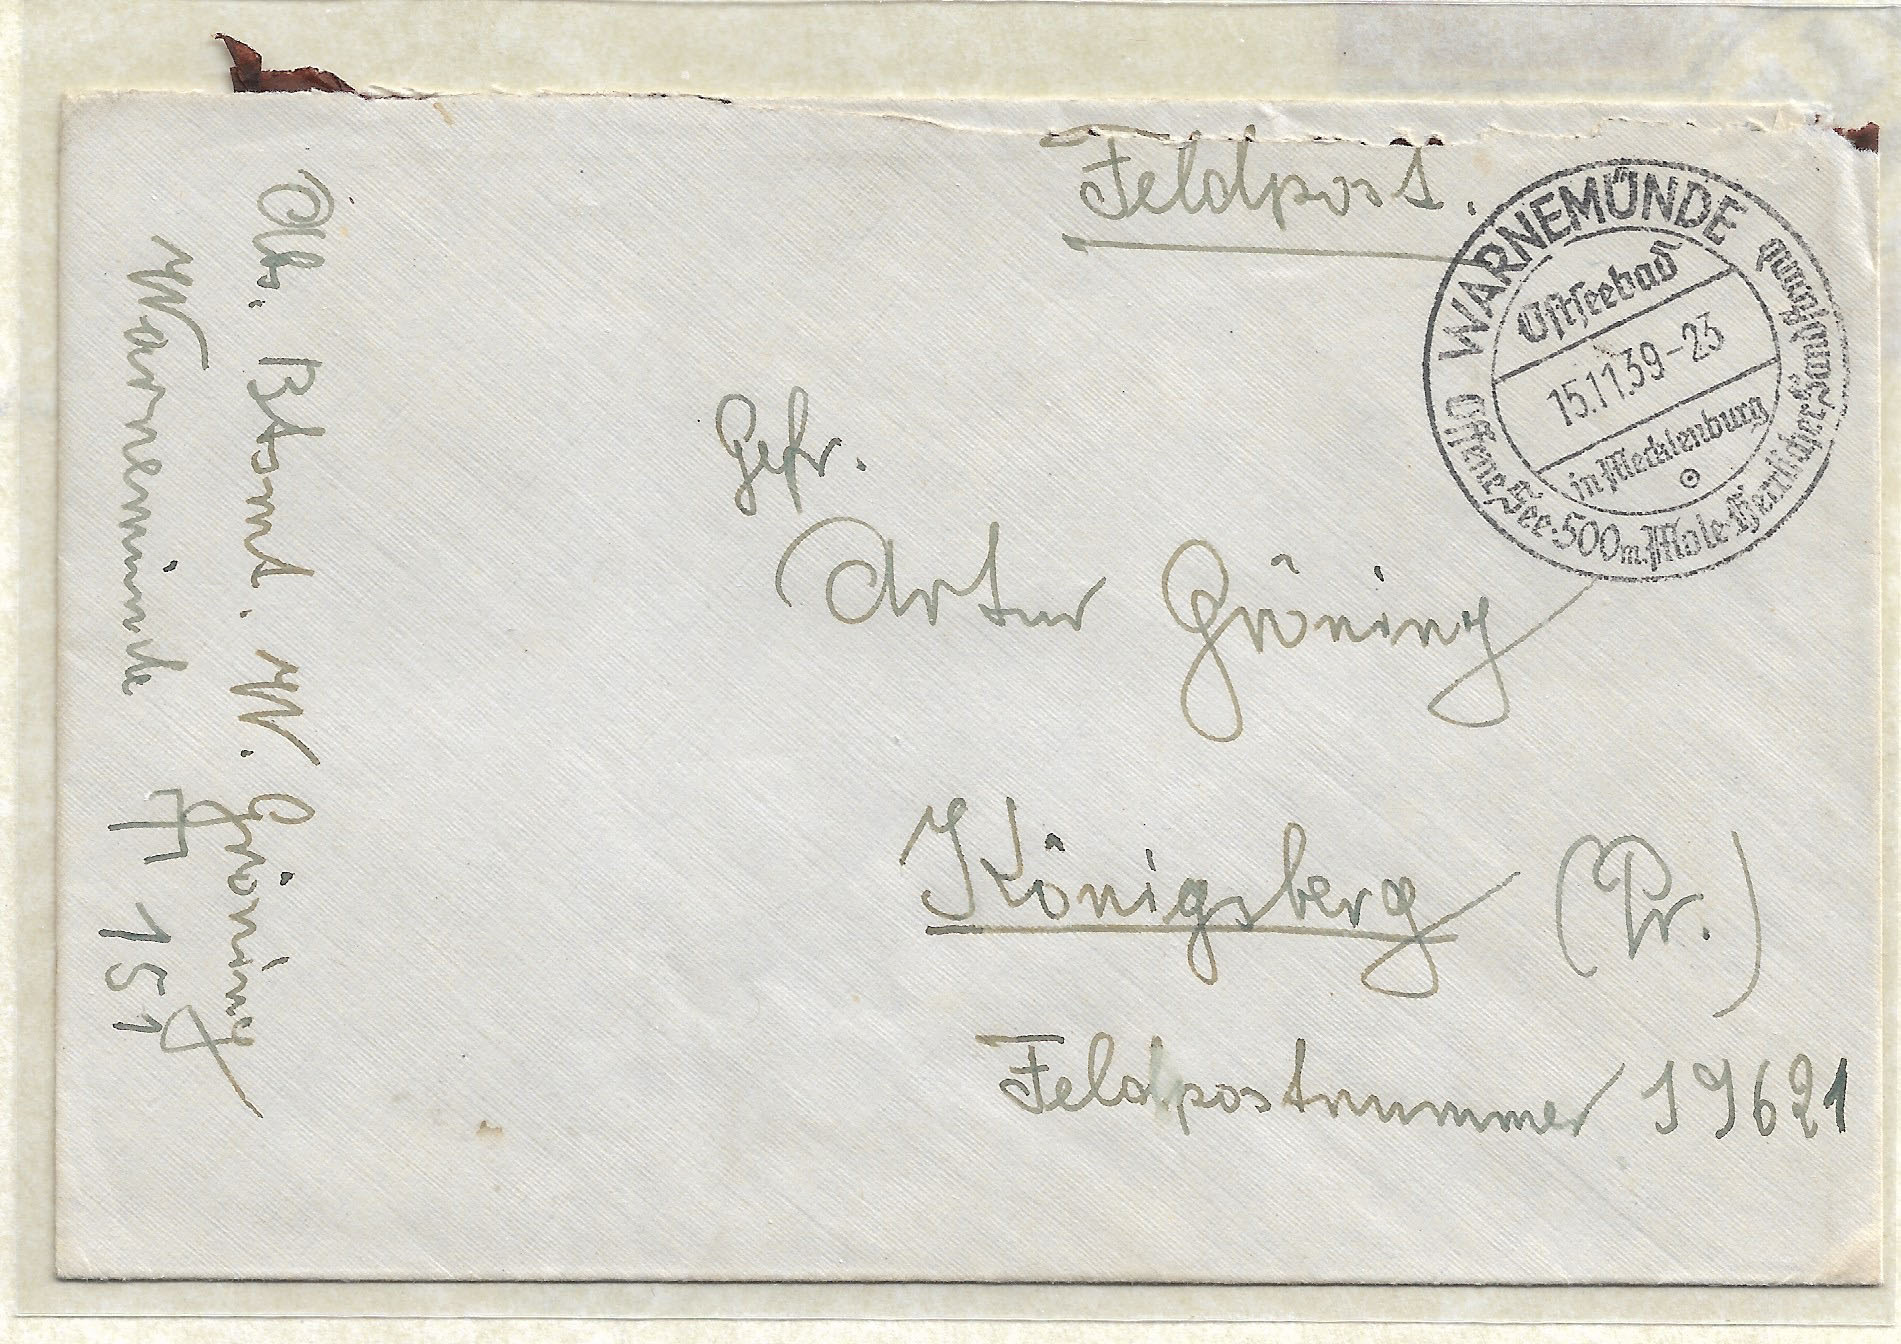 Feldpost.
WARNEMÜNDE
Ostseebad
15.11.39-23
in Mecklenburg
Offene See·500m. Mole·Herrlicher Sandstrand
Gefr.
Artur Gröning
Königsberg (Pr.)
Feldpostnummer 19621
W. Gröning
Warnemünde A 151